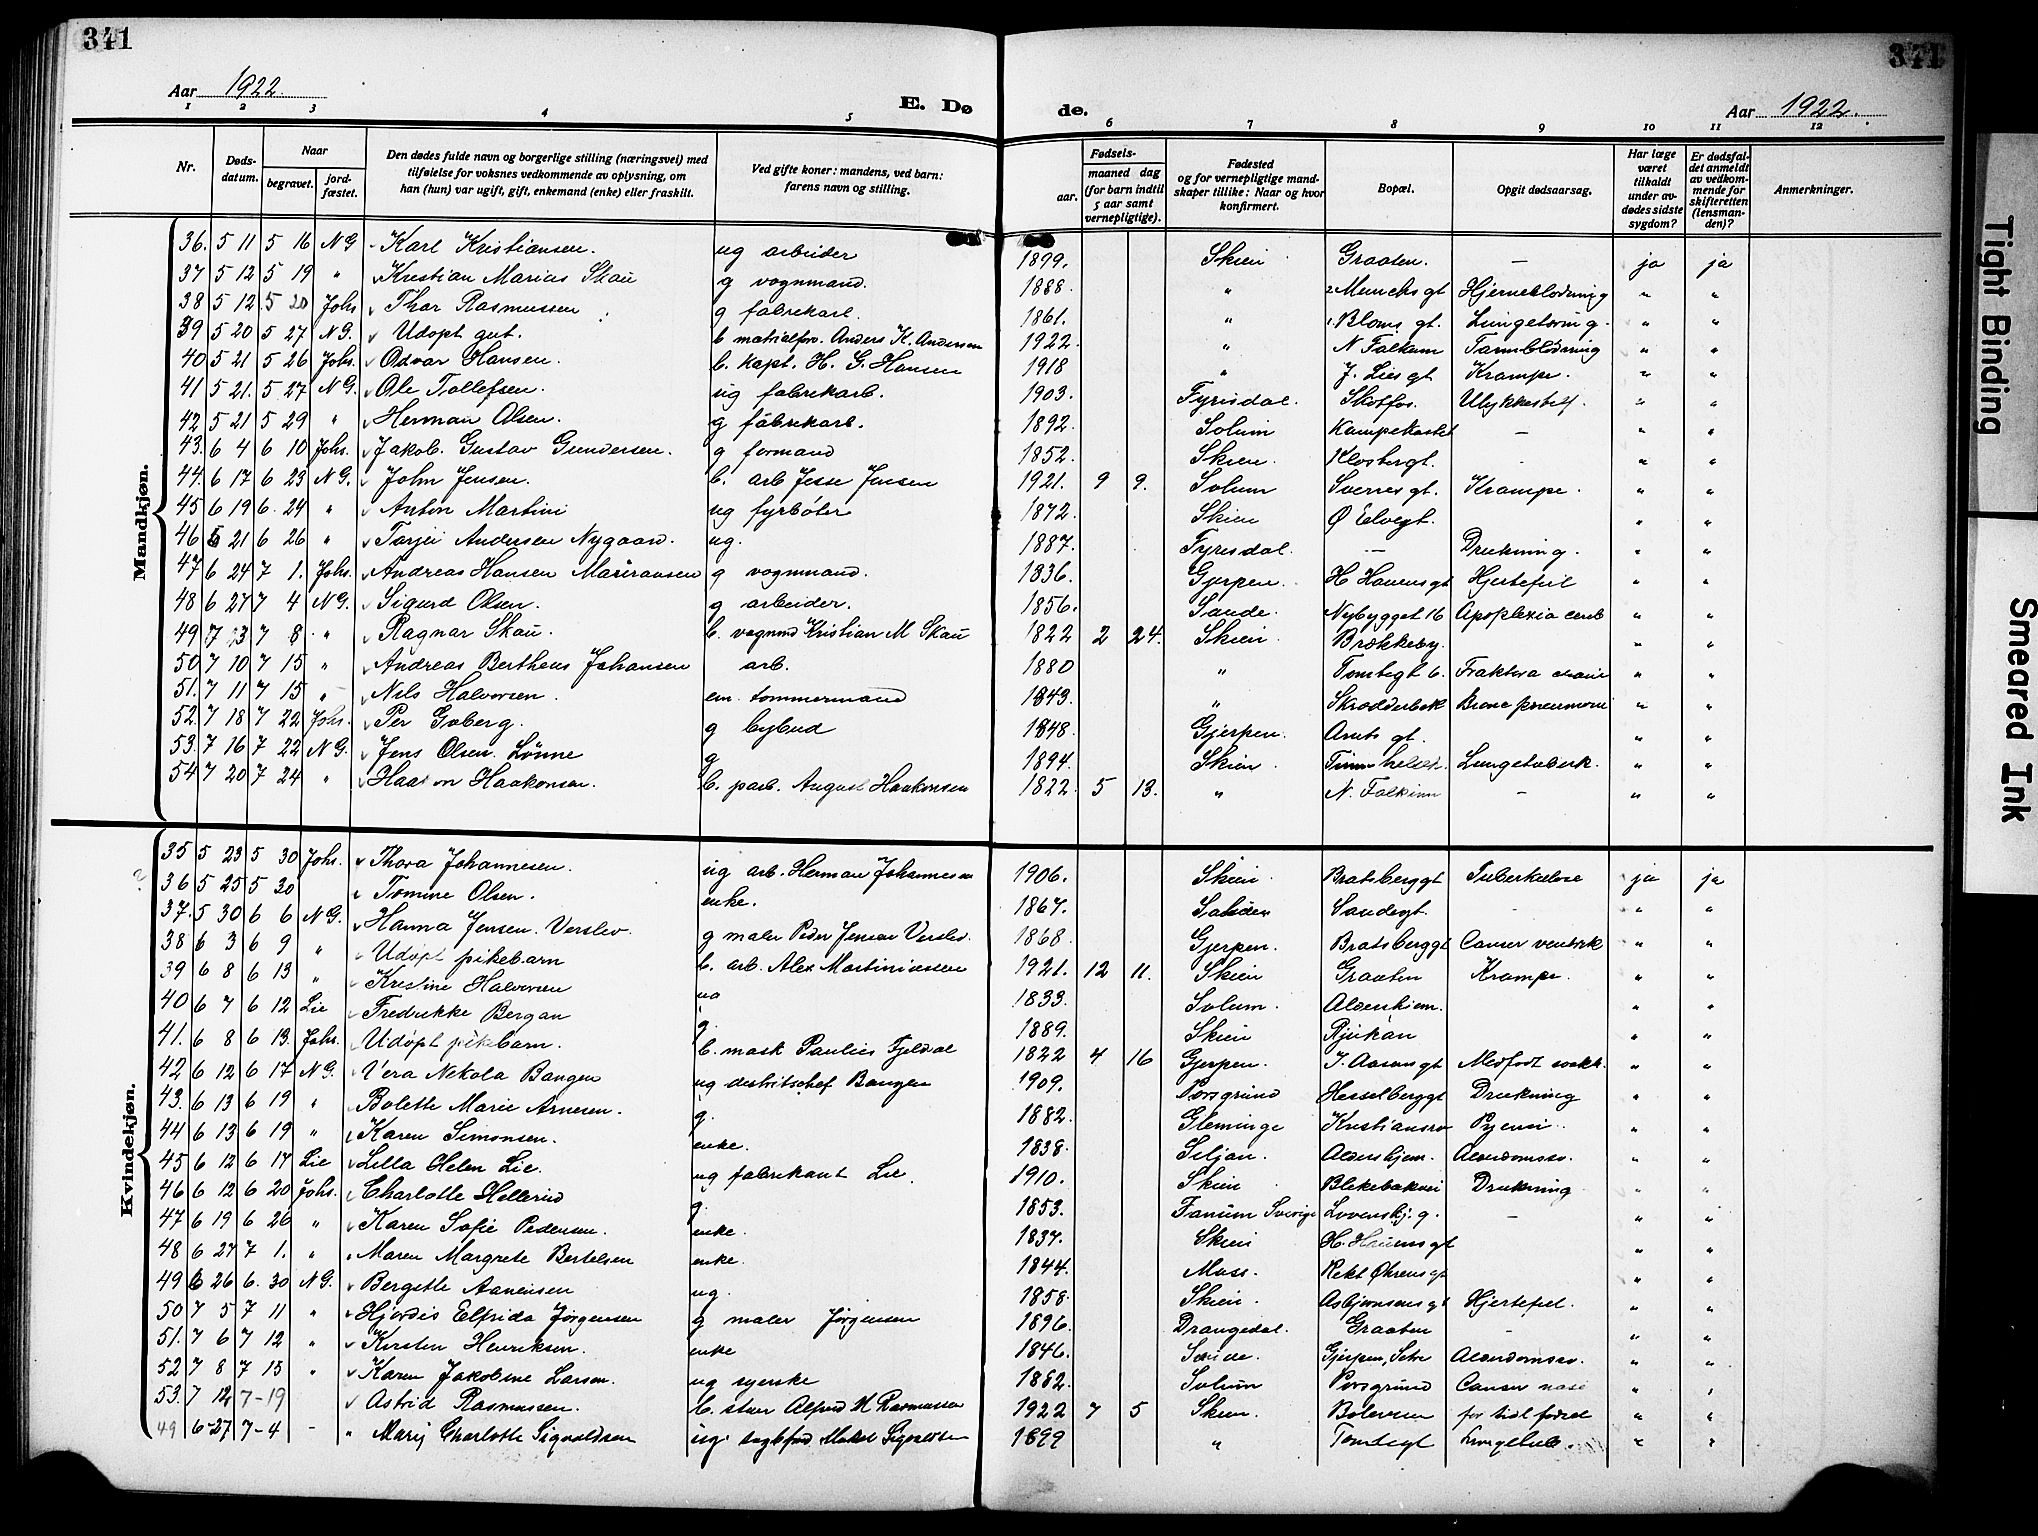 341
341
Aar 1922.
E. Dø
de.
Aar 1922.
1 2 3 4 5 6 7 8 9 10 11 12
Nr.
Døds-datum.
Naar
begravet.
jord-fæstet.
Den dødes fulde navn og borgerlige stilling (næringsvei) med tilføielse for voksnes vedkommende av oplysning, om han (hun) var ugift, gift, enkemand (enke) eller fraskilt.
Ved gifte koner: mandens, ved barn: farens navn og stilling.
Fødsels-
aar.
maaned dag
(for barn indtil 5 aar samt vernepligtige).
Fødested og for vernepligtige mandskaper tillike: Naar og hvor konfirmert.
Bopæl.
Opgit dødsaarsag.
Har læge været tilkaldt under avdødes sidste sygdom?
Er dødsfaldet anmeldt av vedkommende for skifteretten (lensmanden)?
Anmerkninger.
Mandkjøn.
36. 5 11 5 16 N G Karl Kristiansen. ug arbeider 1899. Skien Graaten. — ja ja
37 5 12 5 19 " Kristian Marius Skau g vogmand. 1888. " Munchs gt Hjerneblødning " "
38 5 12 5 20 Johs Thor Rasmussen g fabrekarb. 1861. " Bloms gt. Lungetæring. " "
39 5 20 5 27 N G. Udøpt gut. b matrialforv. Anders K. Andersen 1922. " N Falkum Tarmblødning " "
40 5 21 5 26 Johs. Odvar Hansen. b. kapt. H. G. Hansen 1918 " J. Lies gt Krampe. " "
41 5 21. 5 27 N G. Ole Tollefsen. ug fabrekarb. 1903. Fyrisdal. Skotfos. Ulykkestilf. " "
42 5 21 5 29 " Herman Olsen. g fabrekarb. 1892. Solum Kampekastet — " "
43. 6 4 6 10 Johs. Jakob. Gustav Gundersen. g formand 1852. Skien. Klosbergt. - " "
44. 6 17 6 23 N G. John Jensen. b. arb Jesse Jensen 1921. 9 9. Solum Sverres gt. Krampe. " "
45 6 19 6. 24 " Anton Martini ug fyrbøter 1872. Skien Ø Elvegt. " "
46 21 6 26 " Tarjei Andersen Nygaard. ug. 1887. Fyrisdal. — Drukning. " "
47 6 24 7 1. Johs. Andreas Hansen g vogmand. 1836. Gjerpen. H Hauens gt Hjertefeil " "
48 6 27 7 4 N G. Sigurd Olsen. g arbeider. 1856. Sande. Nybygget 16 Apoplexia cereb " "
49 7 3 7 8 " Ragnar Skau. b. vogmd Kristian M Skau 1822 2 24. Skien. Brekkeby. " "
50 7 10 7 15 " Andreas Berthens Johansen arb. 1880 " Tomtegt 6. Fraktura " "
51. 7 11 7 15 " Nils Halvorsen. em. tømmermand 1843. " Skrodderbek Bronc pneumoni " "
52. 7 18 7 22 Johs. Per Goberg. g bybud 1848. Gjerpen. Amts gt. " "
53. 7 16 7 22 N G. Jens Olsen. Lønne g 1894. Skien. Lungetuberk. " "
54 7 20 7 24 " Haakon Haakonsen. b. parb. August Haakonsen 1822. 5 13. " N. Falkum - " "
Kvindekjøn.
35 5 23 5 30 Johs. Thora Johannesen. ug arb. Herman Johannesen 1906. Skien. Bratsberggt Tuberkulose ja ja
36 5 25 5 30 Tomine Olsen. enke. 1867. Sandegt. - " "
37. 5 30 6 6 N G. Hanna Jensen. Verslev. g maler Peder Jensen Verslev. 1868. Gjerpen. Bratsberggt Canser ventrik " "
38 6 3 6 9 " Udøpt pikebarn b. arb. Alex Martiniussen 1921. 12 11. Skien Graaten Krampe. " "
39 6 8 6 13 " Kristine Halvorsen ug 1833. Solum. Aldershjem. " "
40 6 7 6 12 Lie Fredrikke Bergan g. 1889. Skien Rjukan " "
41. 6 8 6 13. Johs. Udøpt pikebarn. b. mask Paulius Fjeldal 1822 4 16 Gjerpen. I. Aasens gt Medfødt svakh. " "
42 6 12 6 17 N G. Vera Nekola Bangen ug destritschef Bangen 1909. Porsgrund Hesselberggt Drukning " "
43. 6 13 6 19 " Bolette Marie Arnesen. g. 1882. Gleminge Kristiansv Pyemi. " "
44 6 13 6 19 " Karen Simonsen. enke. 1838. Siljan. Aldershjem. Alderdomssv. " "
45 6 12 6 17 Lie Lilla Helen Lie. ug fabrikant Lie. 1910. Skien Blekebakvei Drukning " "
46 6 12 6 20 Johs. Charlotte Hellerud g. 1853. Tanum Sverige Lovenskj. g. — " "
47 6 19 6 26 " Karen Sofie Pedersen. enke. 1837. Skien H. Hauens gt " "
48 6 27 7 1. " Maren Margrete Bertelsen enke. 1844. Moss. Rekt Ørens gt " "
49 6 26 6. 30 N G. Bergette Aanensen ug. 1858. Skien. Asbjørnsens gt Hjertefeil. " "
50 7 5 7 11 " Hjørdis Elfrida Jørgensen g maler Jørgensen 1896. Drangedal. Graaten - " "
51. 7 6 7 12 " Kirsten Henriksen. enke 1846. Sande. Gjerpen, Setre Alderdomssv. " "
52 7 8 7 15 " Karen Jakobine Larsen. ug syerske 1882. Solum Porsgrund Canser nasi " "
53. 7 12 7-19 Astrid Rasmussen. b. stuer Alfred M Rasmussen 1922 7 5 Skien. Bolevein for tidl fødsel " "
49 6-27 7-4 - Marij Charlotte Sigvaldsen ug. 1899 " Tomtegt " "
Tight Binding
Smeared Ink